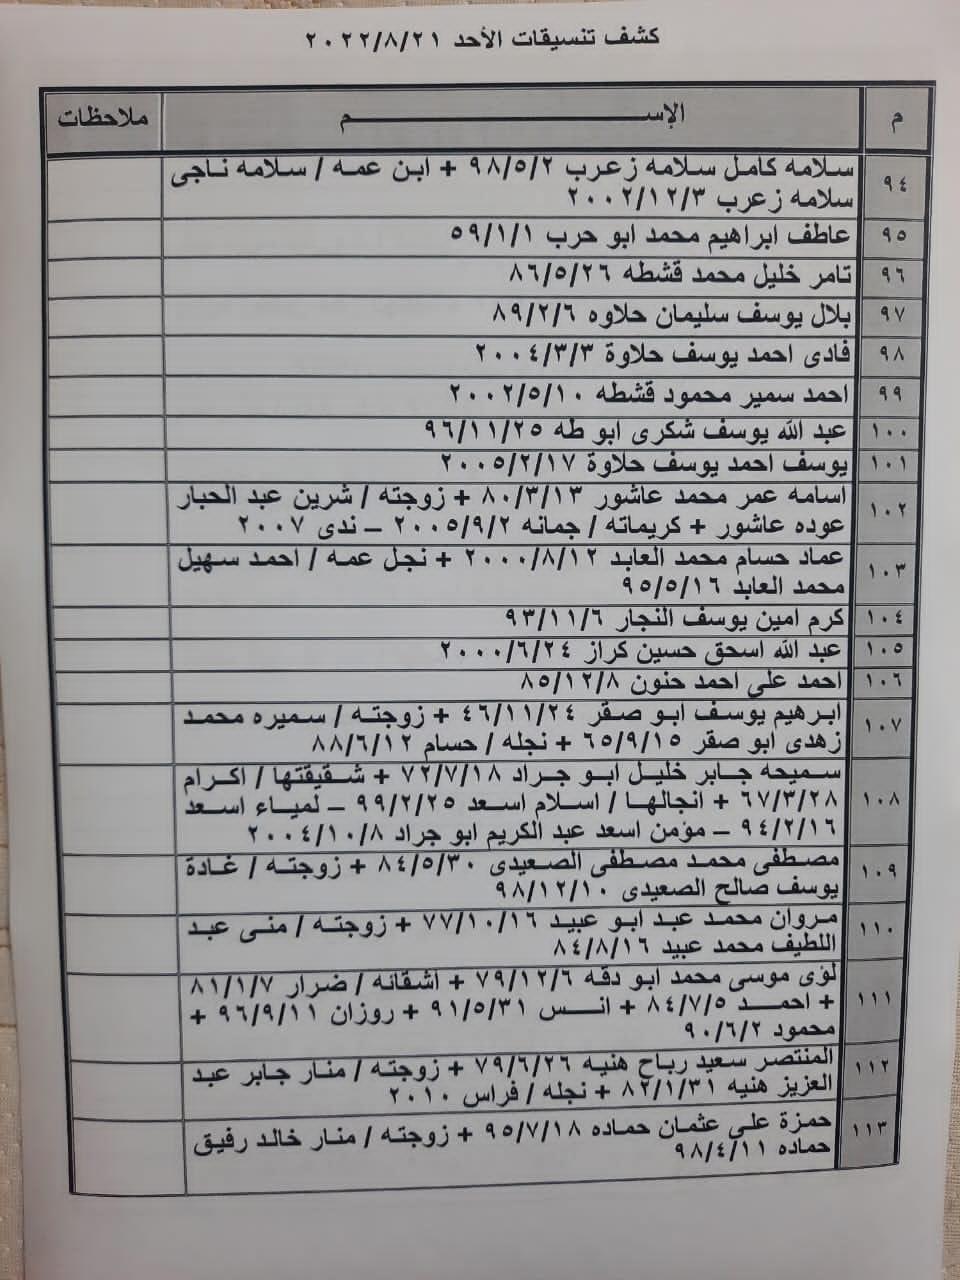 كشف تنسيقات الأحد ٢٠٢٢/٨/٢١
م الإســـــــــــم ملاحظات
٩٤ سلامه كامل سلامه زعرب ٩٨/٥/٢ + ابن عمه / سلامه ناجى
سلامه زعرب ٢٠٠٢/١٢/٣
٩٥ عاطف ابراهيم محمد ابو حرب ٥٩/١/١
٩٦ تامر خليل محمد قشطه ٨٦/٥/٢٦
٩٧ بلال يوسف سليمان حلاوه ٨٩/٢/٦
٩٨ فادى احمد يوسف حلاوة ٢٠٠٤/٣/٣
٩٩ احمد سمير محمود قشطه ٢٠٠٢/٥/١٠
١٠٠ عبد الله يوسف شكرى ابو طه ٩٦/١١/٢٥
١٠١ يوسف احمد يوسف حلاوة ٢٠٠٥/٢/١٧
١٠٢ اسامه عمر محمد عاشور ٨٠/٣/١٣ + زوجته / شرين عبد الحبار
عوده عاشور + كريماته / جمانه ٢٠٠٥/٩/٢ – ندى ٢٠٠٧
١٠٣ عماد حسام محمد العابد ٢٠٠٠/٨/١٢ + نجل عمه / احمد سهيل
محمد العابد ٩٥/٥/١٦
١٠٤ كرم امين يوسف النجار ٩٣/١١/٦
١٠٥ عبد الله اسحق حسين كراز ٢٠٠٠/٦/٢٤
١٠٦ احمد على احمد حنون ٨٥/١٢/٨
١٠٧ ابرهيم يوسف ابو صقر ٤٦/١١/٢٤ + زوجته / سميره محمد
زهدى ابو صقر ٦٥/٩/١٥ + نجله / حسام ٨٨/٦/١٢
١٠٨ سميحه جابر خليل ابو جراد ٧٢/٧/١٨ + شقيقتها / اكرام
٦٧/٣/٢٨ + انجالها / اسلام اسعد ٩٩/٢/٢٥ – لمياء اسعد
٩٤/٢/١٦ – مؤمن اسعد عبد الكريم ابو جراد ٢٠٠٤/١٠/٨
١٠٩ مصطفى محمد مصطفى الصعيدى ٨٤/٥/٣٠ + زوجته / غادة
يوسف صالح الصعيدى ٩٨/١٢/١٠
١١٠ مروان محمد عبد ابو عبيد ٧٧/١٠/١٦ + زوجته / منى عبد
اللطيف محمد عبيد ٨٤/٨/١٦
١١١ لؤى موسى محمد ابو دقه ٧٩/١٢/٦ + اشقائه / ضرار ٨١/١/٧
+ احمد ٨٤/٧/٥ + انس ٩١/٥/٣١ + روزان ٩٦/٩/١١ +
محمود ٩٠/٦/٢
١١٢ المنتصر سعيد رباح هنيه ٧٩/٦/٢٦ + زوجته / منار جابر عبد
العزيز هنيه ٨٢/١/٣١ + نجله / فراس ٢٠١٠
١١٣ حمزة على عثمان حماده ٩٥/٧/١٨ + زوجته / منار خالد رفيق
حماده ٩٨/٤/١١